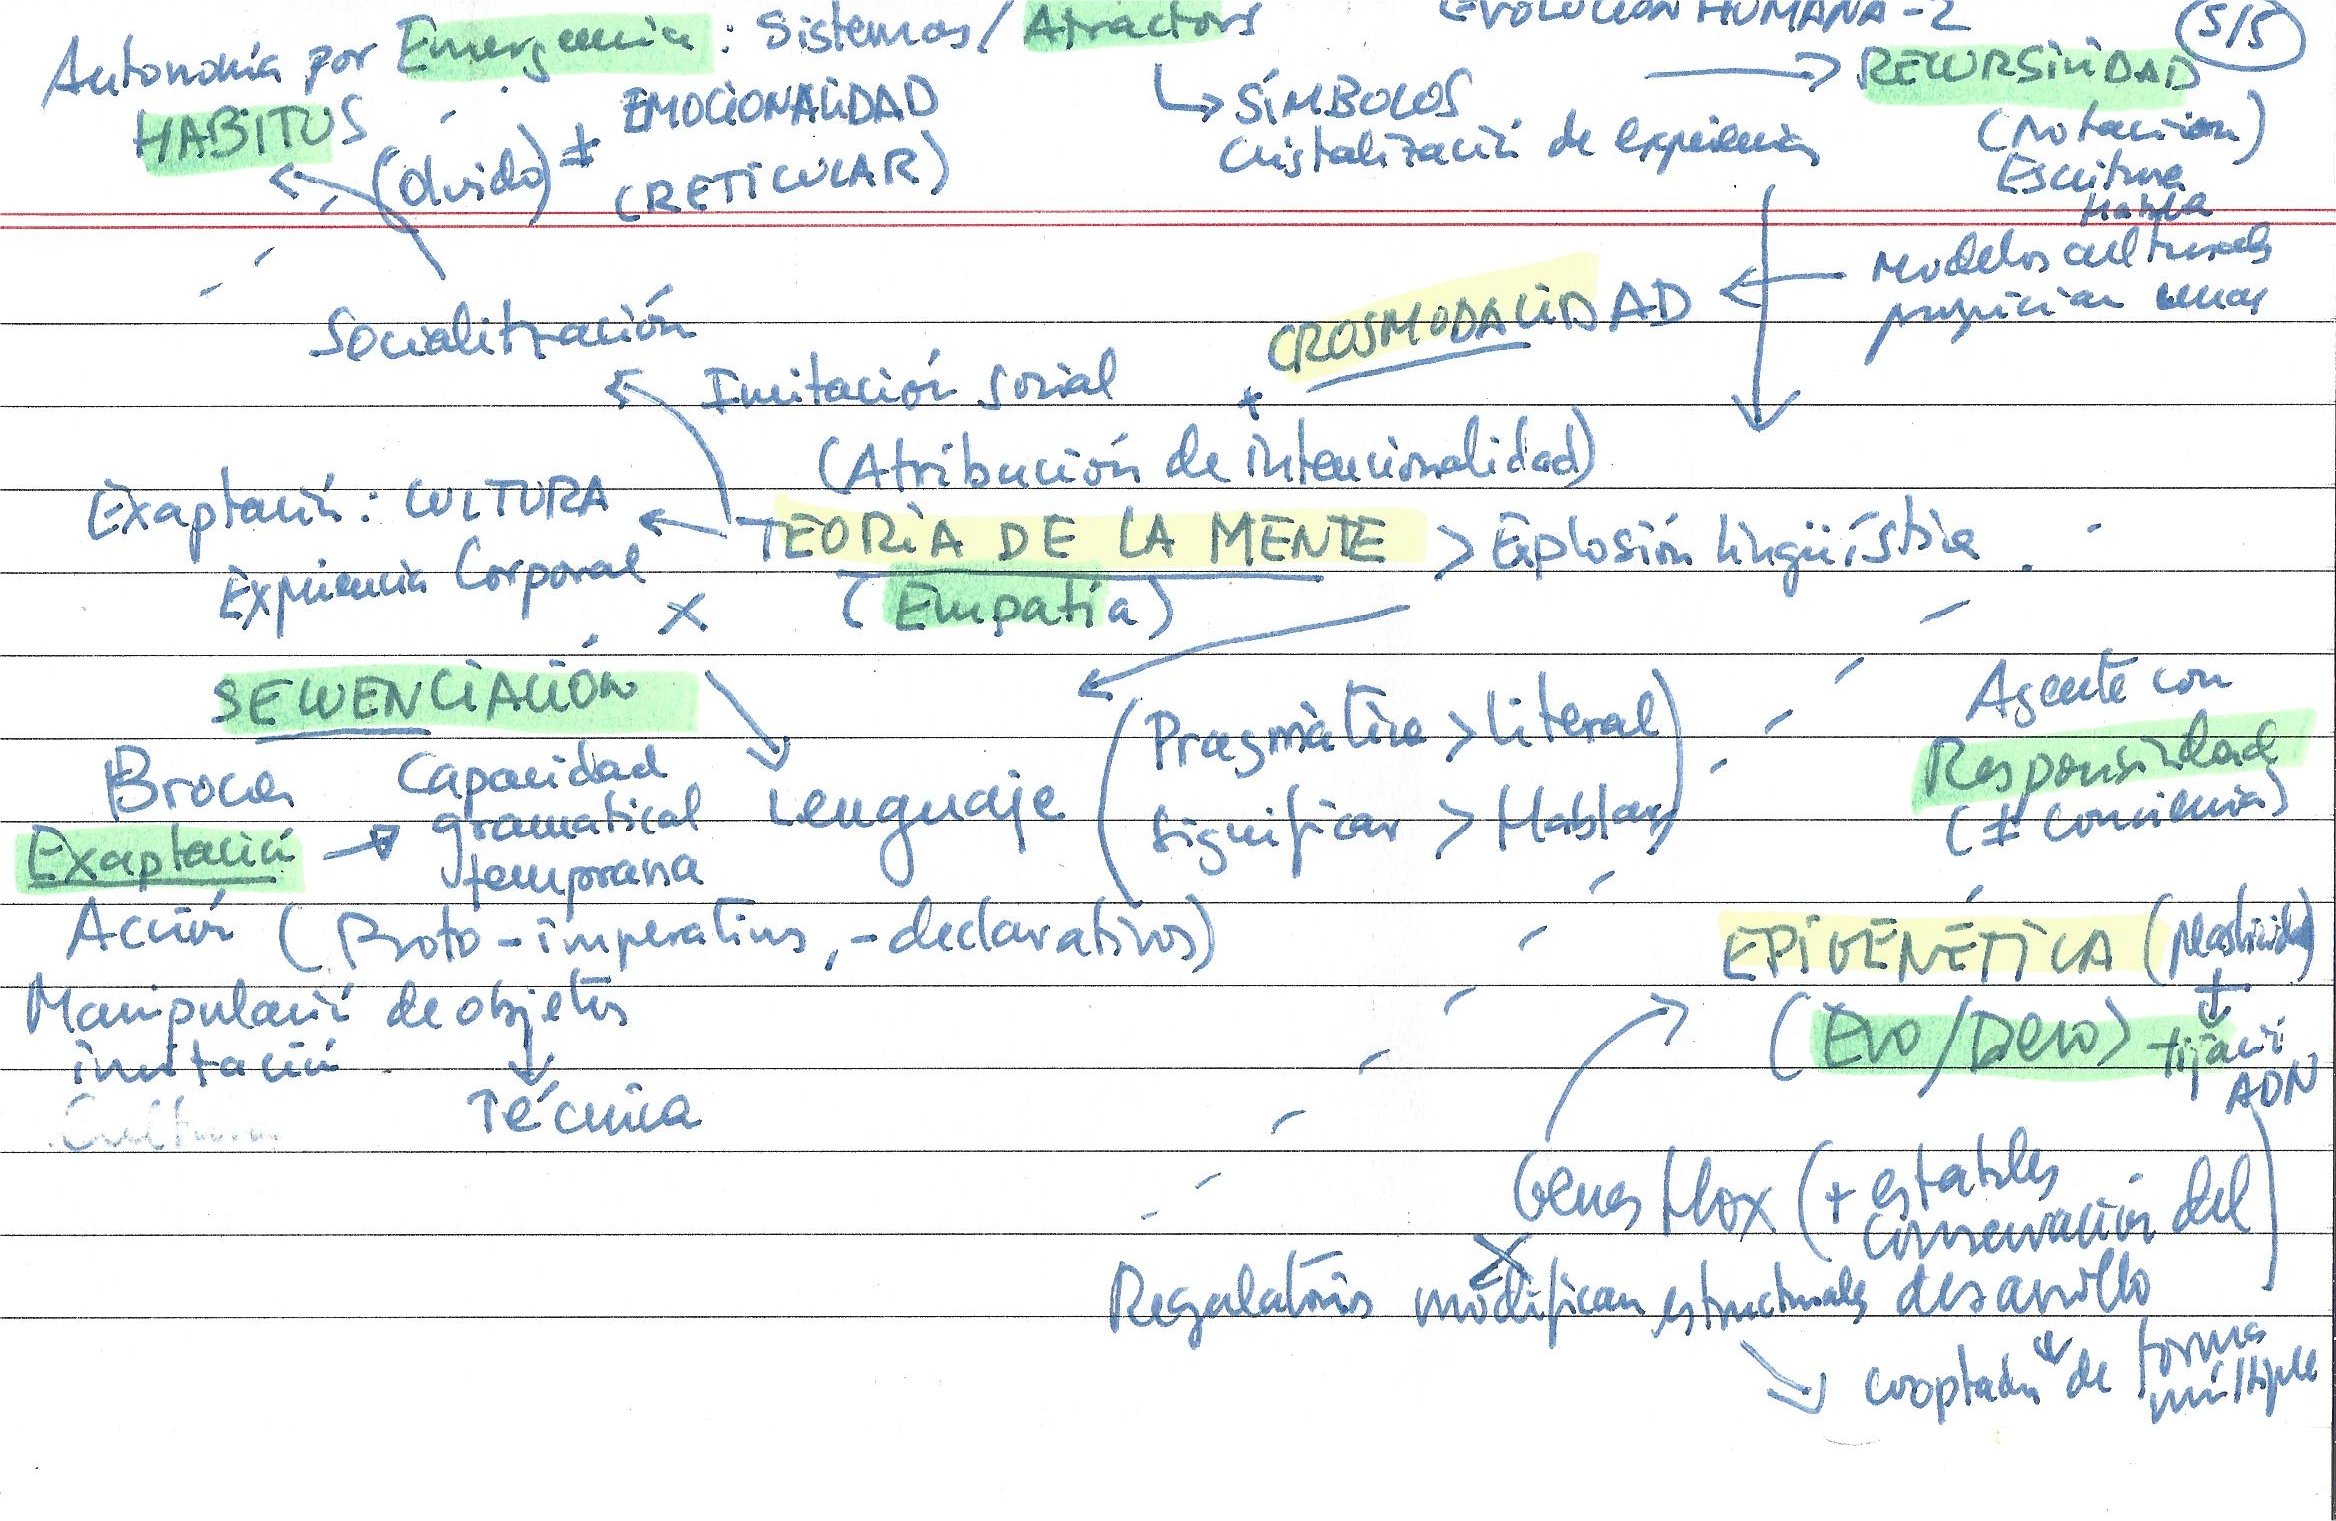 EVOLUCIÓN HUMANA - 2
5/5
Autonomía por Emergencia: Sistemas / Atractors
HABITUS
(olvido) ± EMOCIONALIDAD
(RETICULAR)
SÍMBOLOS
Cristalización de experiencias
RECURSIVIDAD
(Notación)
Escritura
Habla
Modelos culturales
propician
CROSMODALIDAD
Socialitzación
Imitación social +
(Atribución de intencionalidad)
Exaptación: CULTURA
Experiencia Corporal
TEORÍA DE LA MENTE > Explosión lingüística
X (Empatía)
SECUENCIACIÓN
Broca
Capacidad
gramatical
temprana
Exaptación
Lenguaje
(Pragmática > literal
significar > Hablar)
Agente con
Responsividad
(± conciencia)
Acción (Proto-imperativos, -declarativos)
Manipulació de objetos
imitació
Cultura
Técnica
EPIGENÉTICA (plasticidad)
(Evo/Devo) + fijació
ADN
Genes Hox (+ estables
conservación del
desarrollo
X
Regulatorios modifican estructurales
cooptados de forma
múltiple